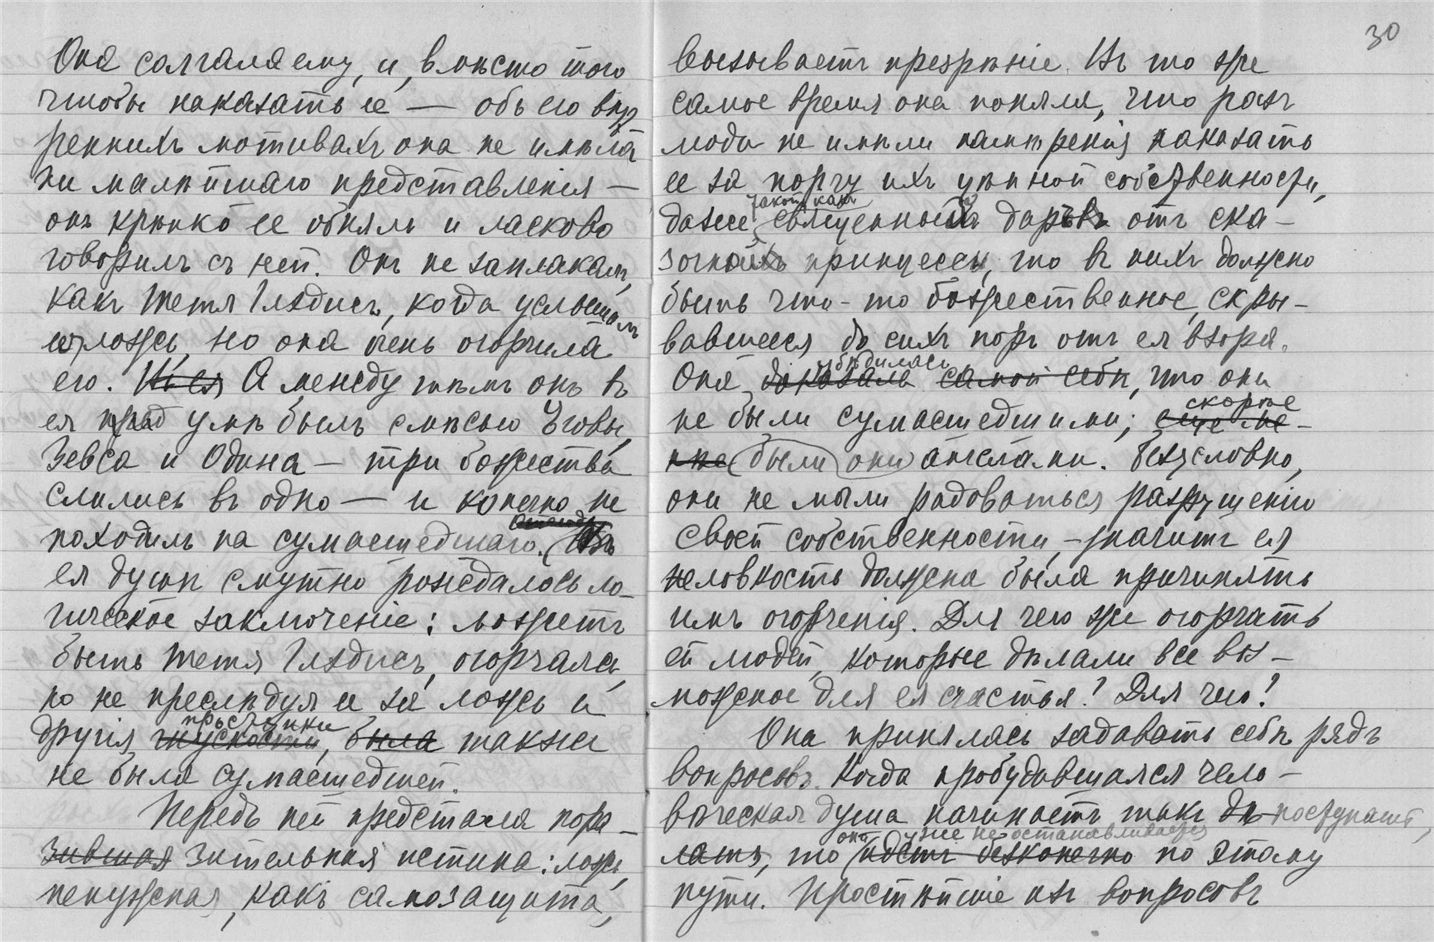 Она солгала ему, и, вмѣсто того
чтобы наказать ее — объ его внут
реннихъ мотивахъ она не имѣла
ни малѣйшаго представленія —
онъ крѣпко ее обнялъ и ласково
говорилъ съ ней. Онъ не заплакалъ,
какъ тетя Глэдисъ, когда услышалъ
ложь, но она очень огорчила
его. А между тѣмъ онъ въ
ея умѣ былъ смѣсью Іеговы,
Зевса и Одина — три божества
слились въ одно — и конечно не
походилъ на сумасшедшаго. Въ
ея душѣ смутно рождалось ло-
гическое заключеніе: можетъ
быть тетя Глэдисъ, огорчаясь,
но не преслѣдуя ее за ложь и
другія проступки, была также
не была сумасшедшей.
Передъ ней предстала пора-
зившая зительная истина: ложь,
ненужная, какъ самозащита,
30
вызываетъ презрѣніе. Въ то же
самое время она поняла, что разъ
люди не имѣли намѣренія наказать
ее за порчу ихъ цѣнной собственности,
даже такой какъ священный даръ отъ ска-
зочной принцессы, то въ нихъ должно
быть что-то божественное, скры-
вавшееся до сихъ поръ отъ ея взора.
Она убѣдилась доказала самой себѣ, что они
не были сумасшедшими; скорѣе
были они ангелами. Безусловно,
они не могли радоваться разрушенію
своей собственности, — значитъ ея
неловкость должна была причинять
имъ огорченія. Для чего же огорчать
ей людей, которые дѣлали все воз-
можное для ея счастья? Для чего?
Она принялась задавать себѣ рядъ
вопросовъ. Когда пробудившаяся чело-
вѣческая душа начинаетъ такъ поступать,
то она уже не останавливается идетъ безконечно по этому
пути. Простѣйшіе изъ вопросовъ